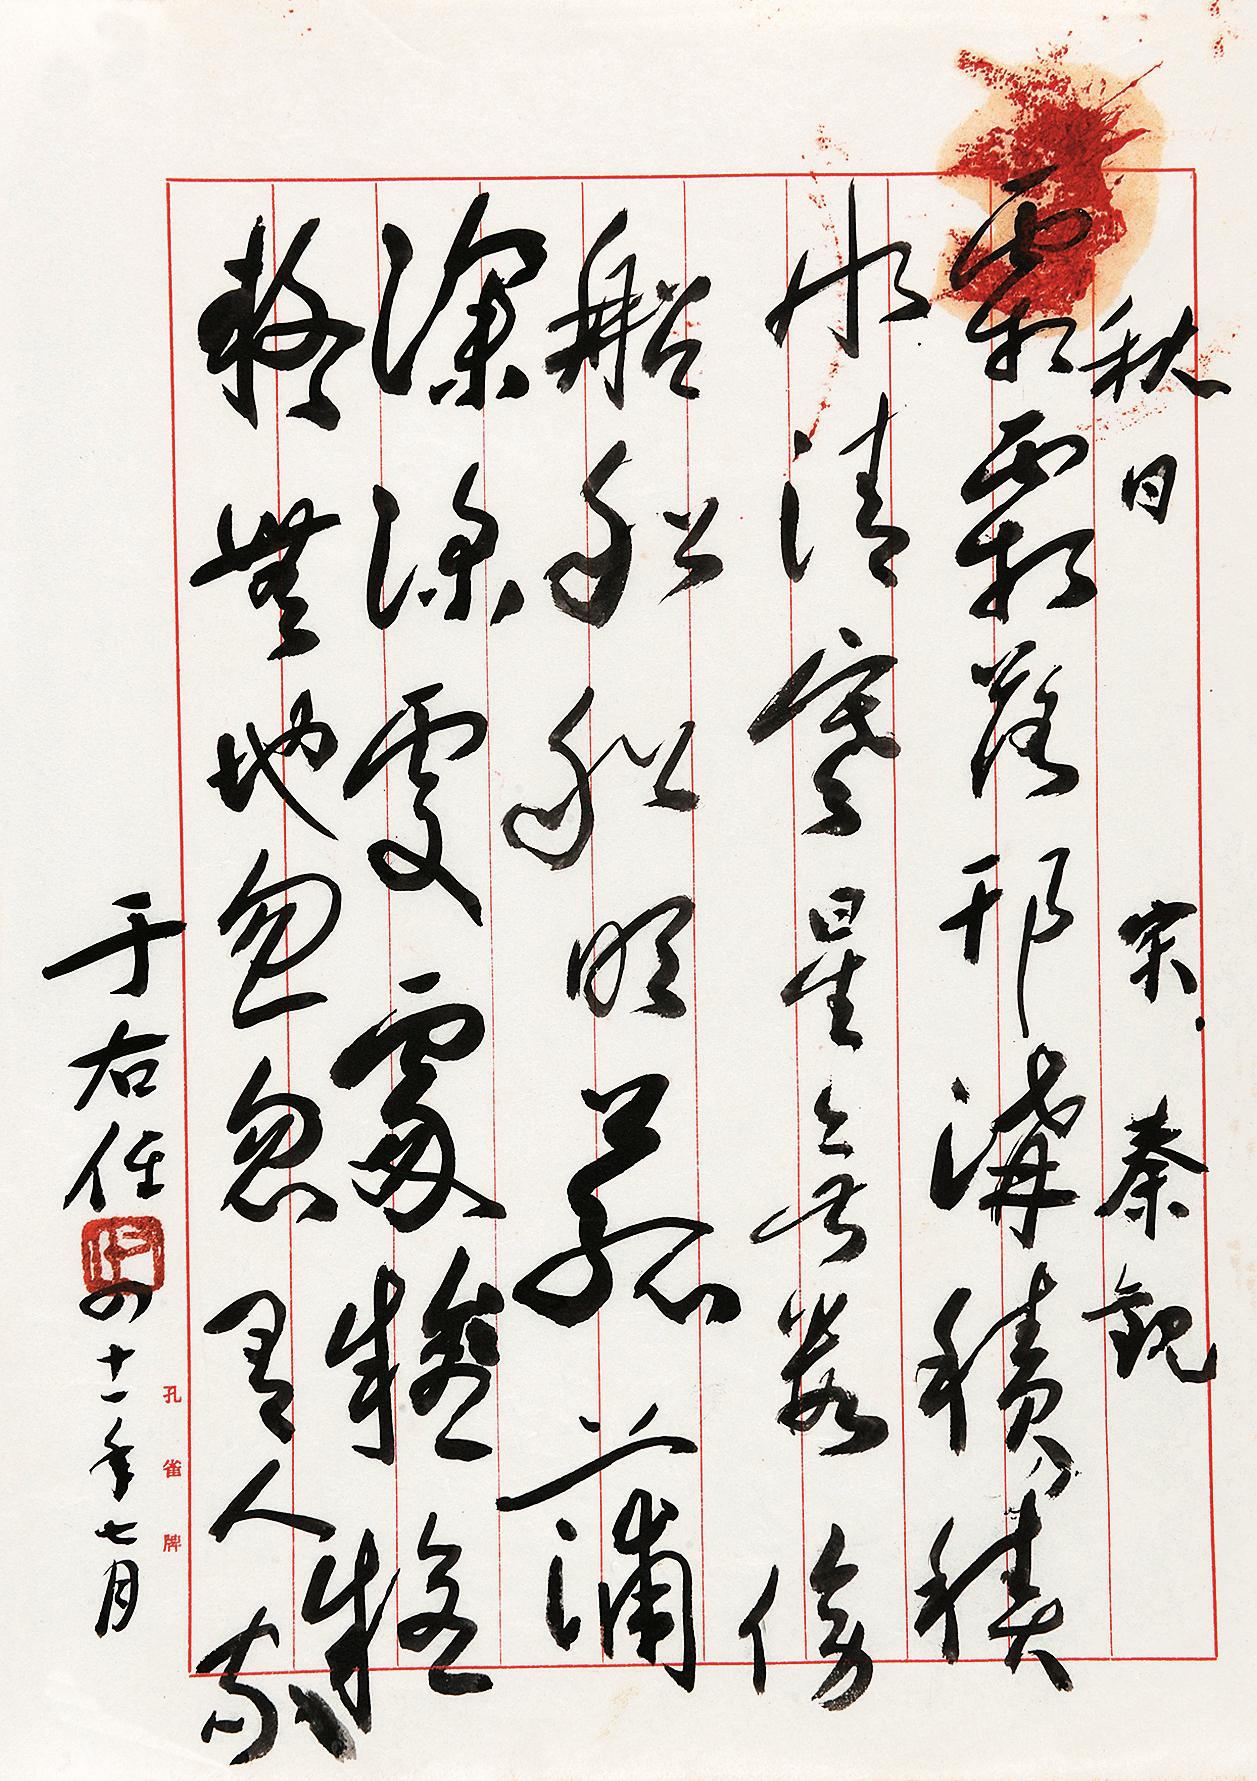 秋日 宋 秦觀
霜霜落邗溝積積
水清寒星無數傍
船船船明菰蒲
深深處處疑疑
疑無地忽忽有人家
于右任
四十一年七月
孔雀牌